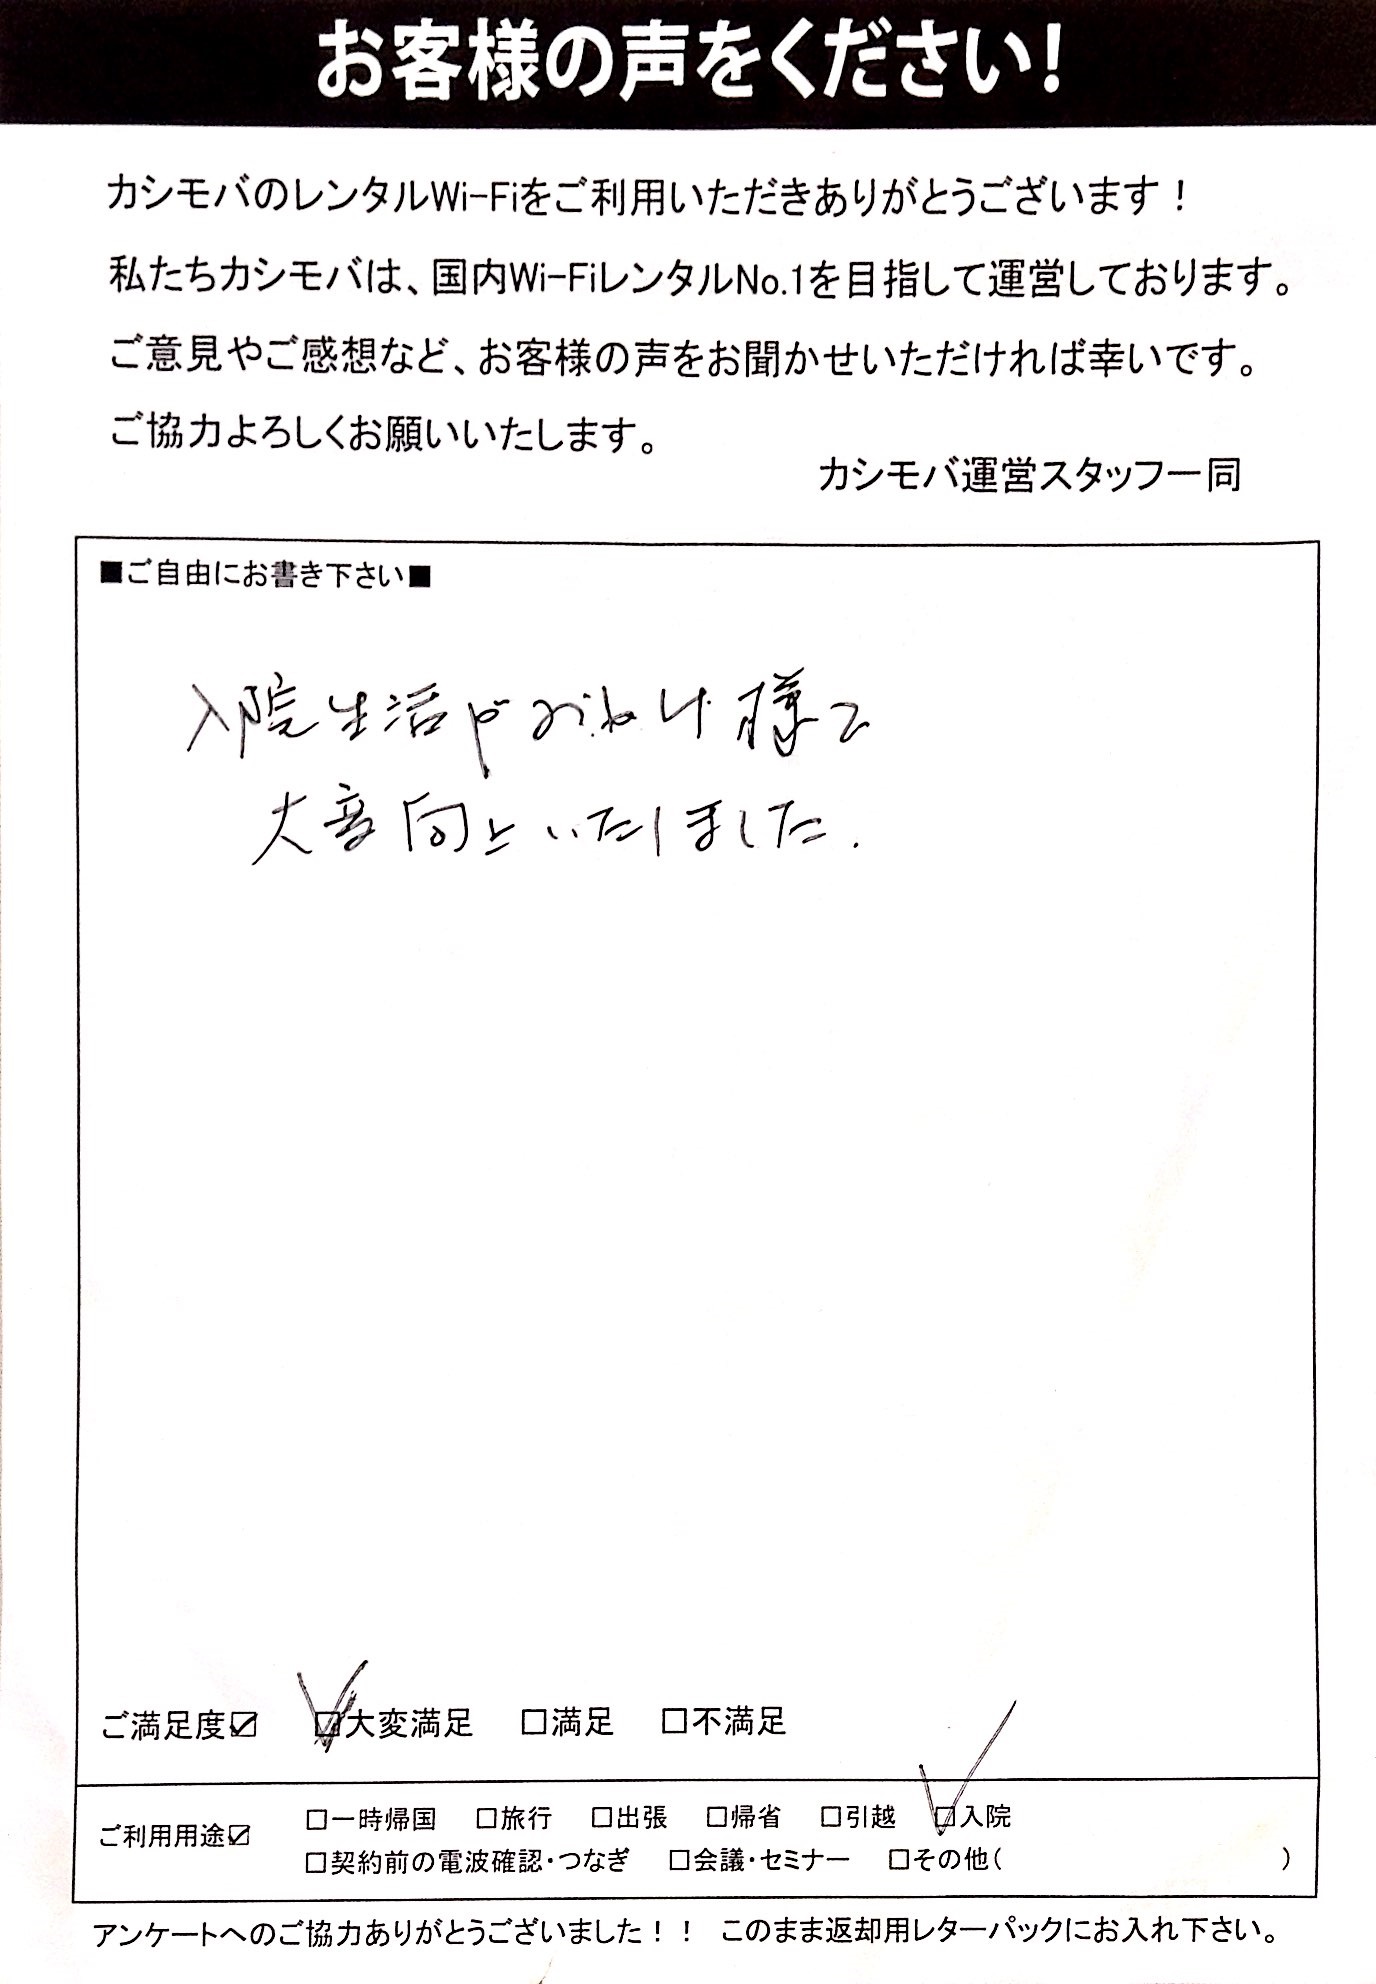 お客様の声をください!
カシモバのレンタルWi-Fiをご利用いただきありがとうございます!
私たちカシモバは、国内Wi-FiレンタルNo.1を目指して運営しております。
ご意見やご感想など、お客様の声をお聞かせいただければ幸いです。
ご協力よろしくお願いいたします。
カシモバ運営スタッフ一同
■ご自由にお書き下さい■
入院生活がおかげ様で
大変向上いたしました.
ご満足度☑ ☑大変満足 □満足 □不満足
ご利用用途☑ □一時帰国 □旅行 □出張 □帰省 □引越 ☑入院
□契約前の電波確認・つなぎ □会議・セミナー □その他( )
アンケートへのご協力ありがとうございました!! このまま返却用レターパックにお入れ下さい。